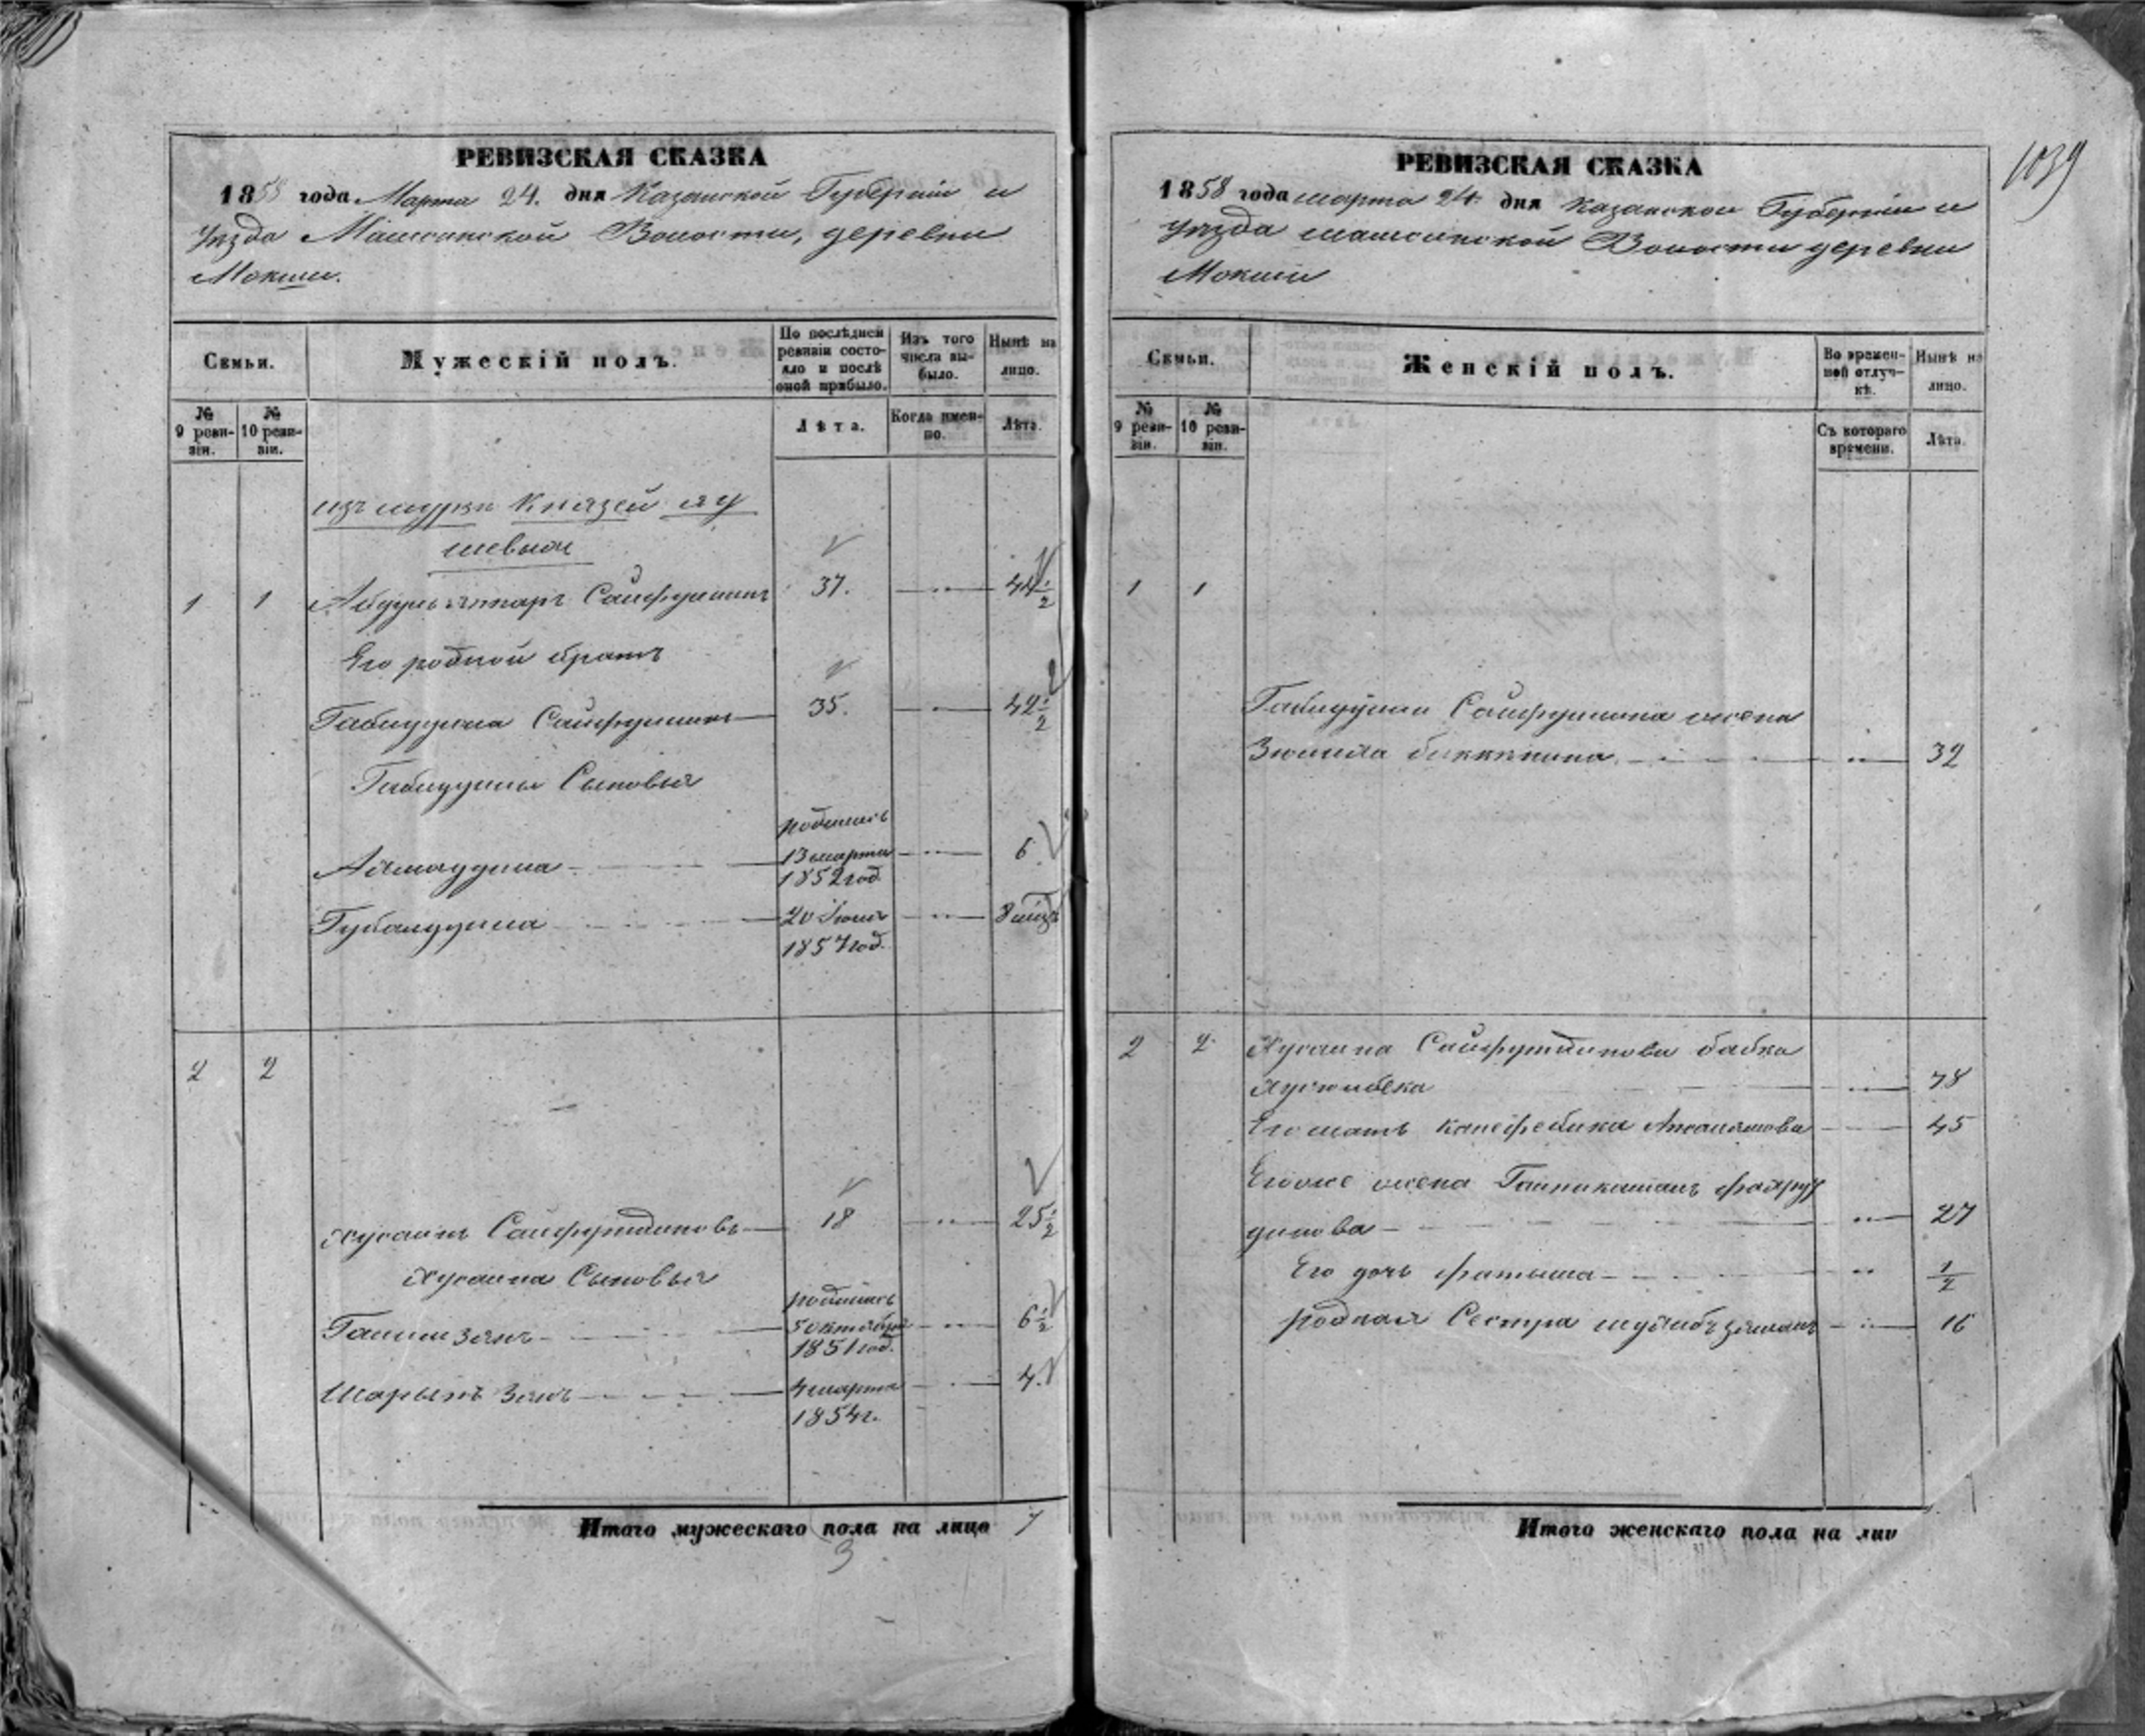 РЕВИЗСКАЯ СКАЗКА
1858 года Марта 24. дня Казанской Губерніи и
Уѣзда Машсинской Волости, деревни
Мокши.
Семьи.
Мужескій полъ.
По послѣдней ревизіи состояло и послѣ оной прибыло.
Изъ того числа выбыло.
Нынѣ на лицо.
№ 9 ревизіи.
№ 10 ревизіи.
Лѣта.
Когда именно.
Лѣта.
изъ мурзъ Князей яу
шевыхъ
1 1 Сайфуллинъ 37. 44 1/2
Его родной братъ
Габидулла Сайфуллинъ 35. 42 1/2
Габидуллы Сыновья
родились
13 марта 6
1852 год.
20 Іюля 8 мѣсц
1857 год.
2 2
Хусаинъ Сайфутдиновъ 18 25 1/2
Хусаина Сыновья
родились
5 октября 6 1/2
1851 год.
4 марта 4.
1854 г.
Итого мужескаго пола на лицо 7
3
1039
РЕВИЗСКАЯ СКАЗКА
1858 года марта 24. дня Казанской Губерніи и
уѣзда машсинской Волости деревни
Мокши
Семьи.
Женскій полъ.
Во временной отлучкѣ.
Нынѣ на лицо.
№ 9 ревизіи.
№ 10 ревизіи.
Съ котораго времени.
Лѣта.
1 1
Габидуллы Сайфуллина жена
32
2 2 Хусаина Сайфутдинова бабка
78
Его мать 45
Его же жена
27
Его дочь 1/2
родная Сестра 16
Итого женскаго пола на лиц